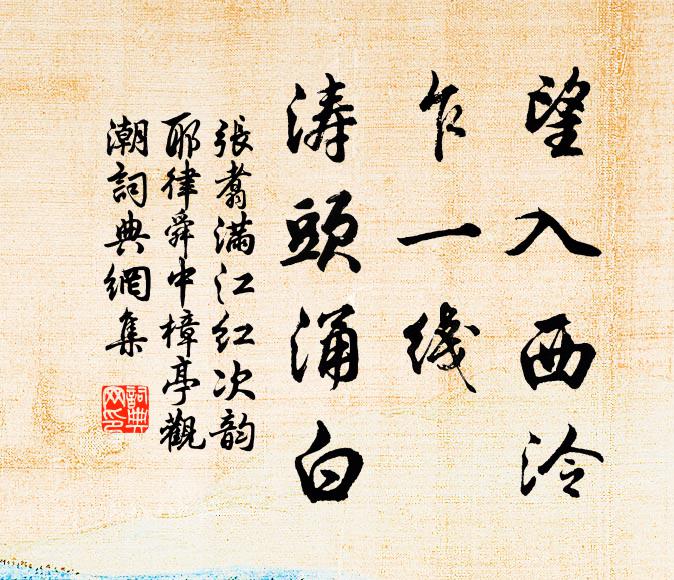 望入西泠
乍一线
涛頭涌白
張翥滿江红次韵
耶律舜中樟亭觀
潮詞典網集
詞典
网印